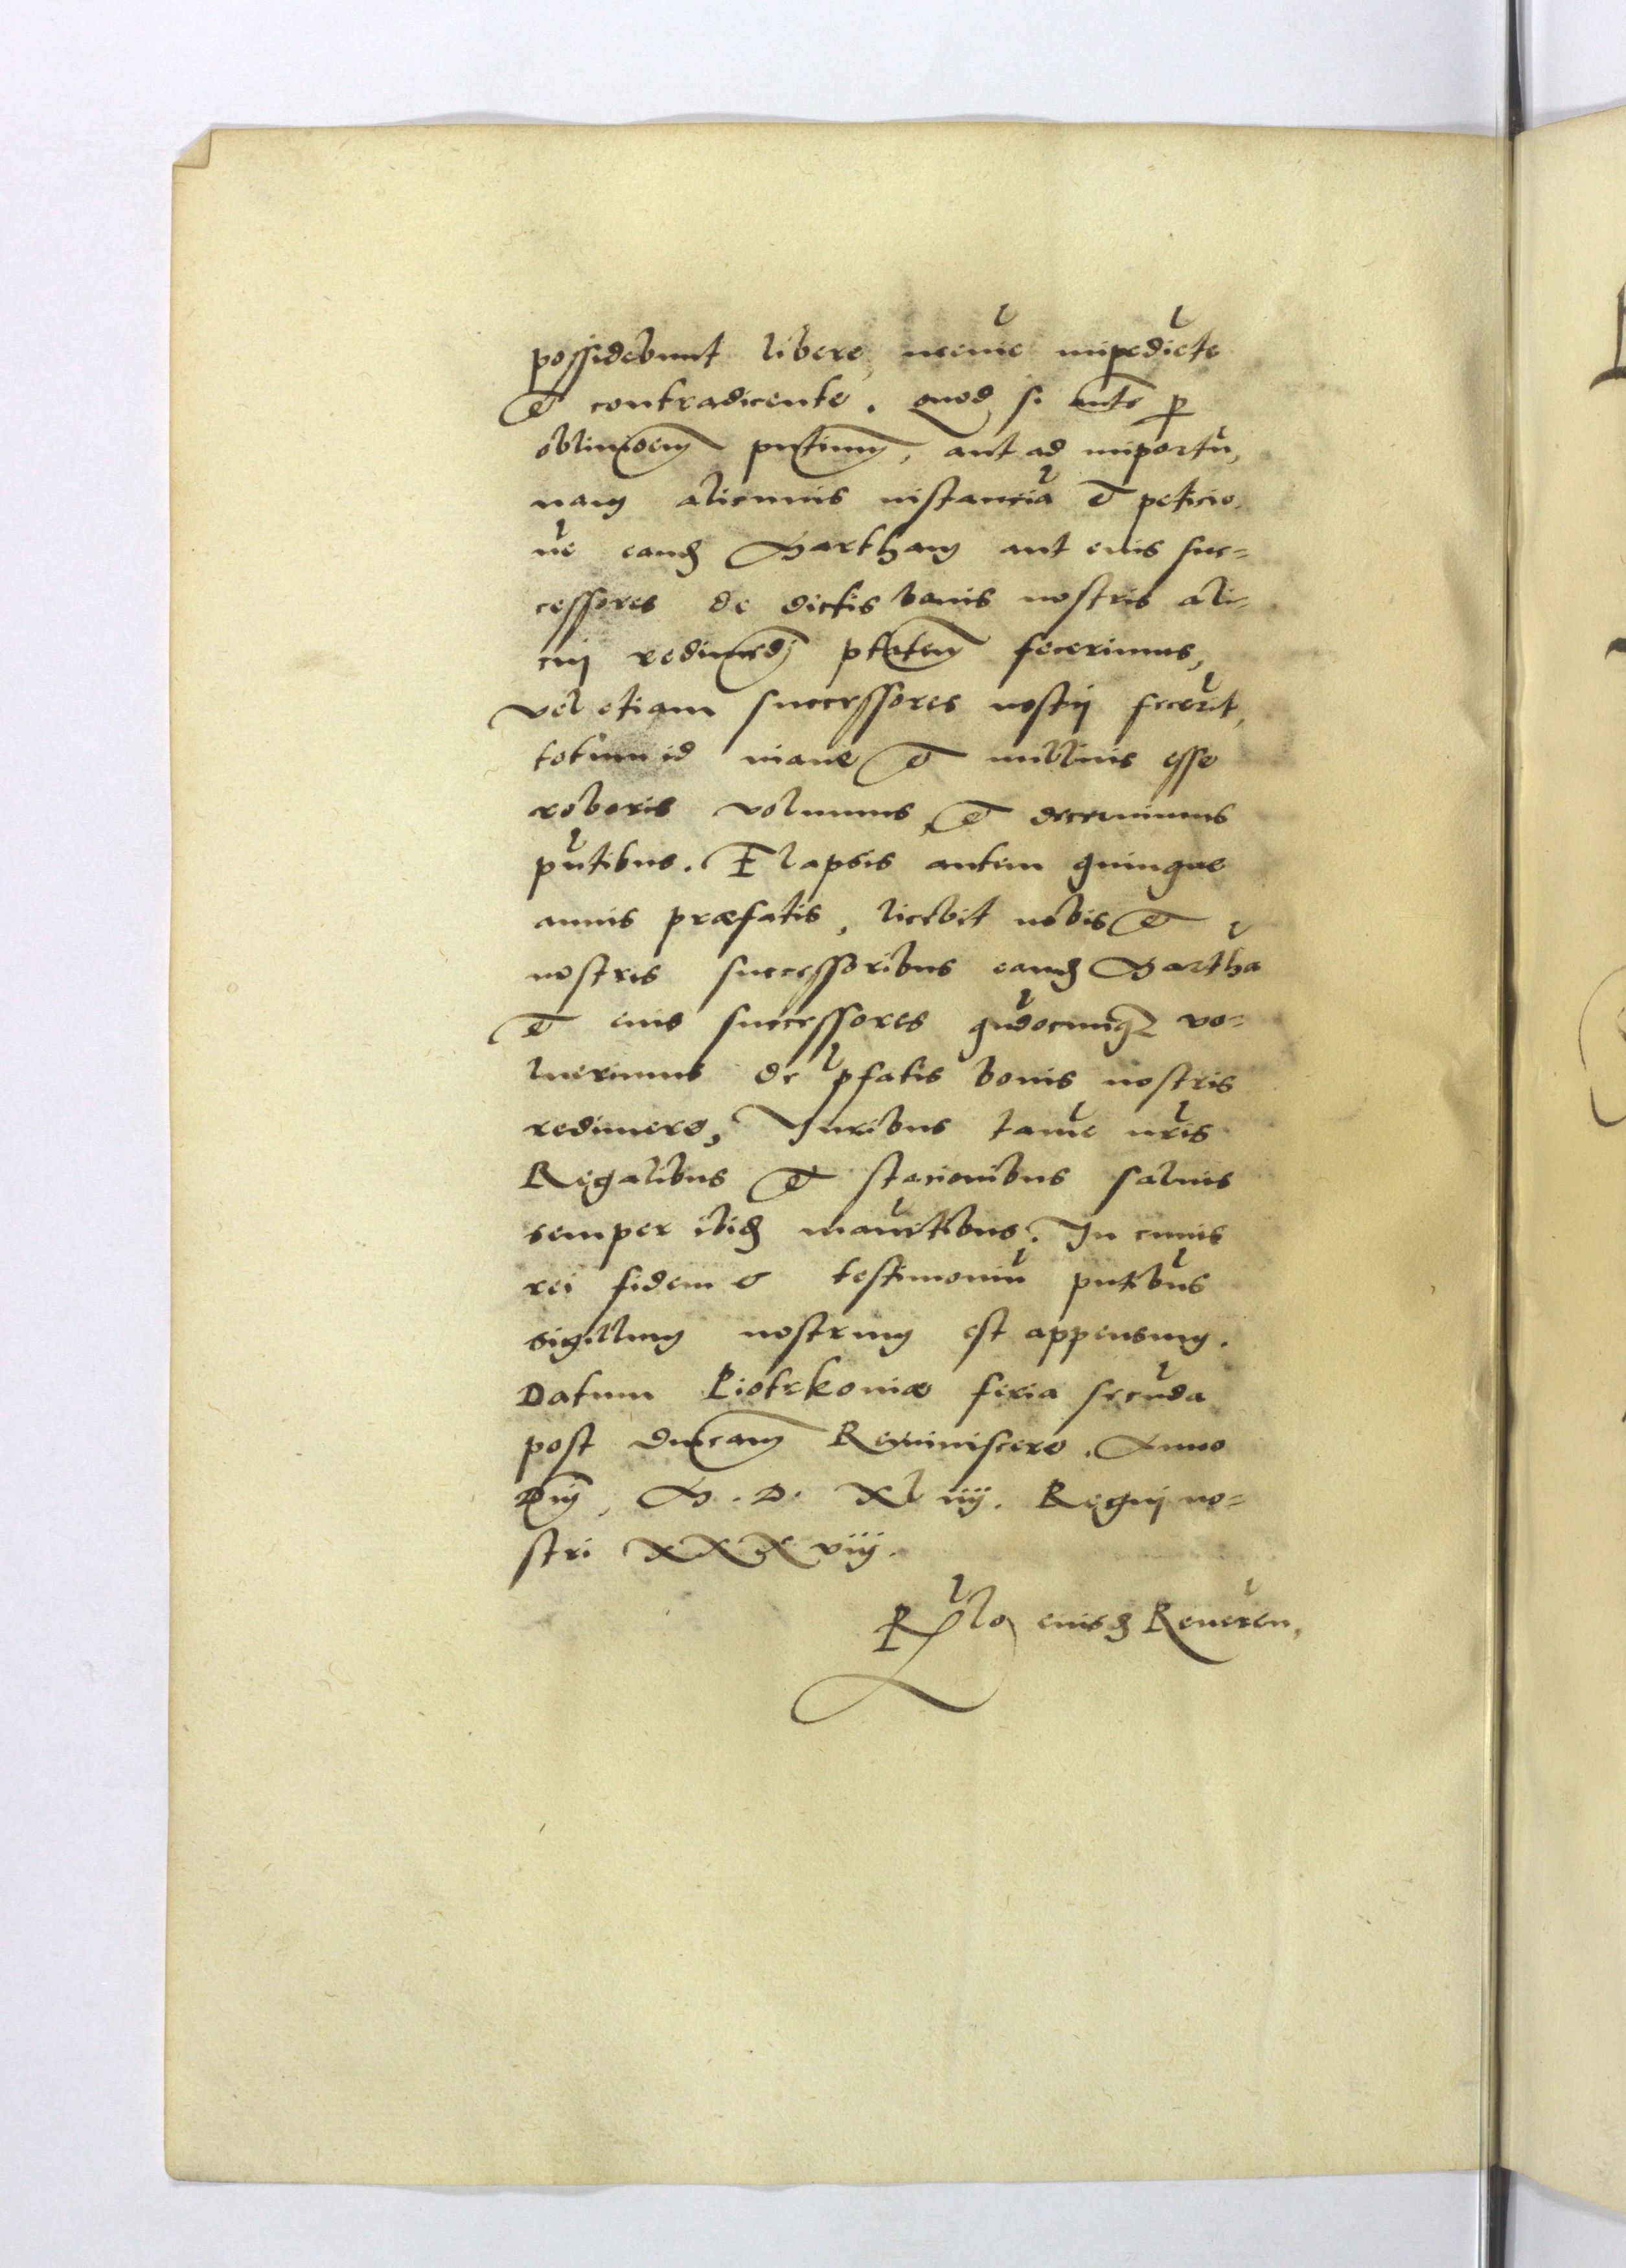 possidebunt libere, nemīe impedīete
et contradicente. Quod si ante p̱
obliuioem̄ pn̄tium̄, aut ad importū,
nam alicuius instanciā et peticio,
nē eand. Martham aut eius suc=
cessores de dictis bonis nostris ali=
cuj redimēdj ptātem̄ fecerimus,
vel etiam successores nostrj fecerīt,
totum id inane et nullius esse
roboris volumus et decernimus
pn̄tibus. Elapsis autem quinque
annis præfatis, licebit nobis et
nostris successoribus eand. Marthā
et eius successores qūdocunq3 vo=
luerimus de p̄fatis bonis nostris
redimere, Juribus tamē nr̄is
Regalibus et stacionibus saluis
semper ibid. manētibus. In cuius
rei fidem et testimoniū pn̄tibus
sigillum nostrum est appensum.
Datum Piotrkoviæ feria secūda
post dn̄icam Reminiscere. Anno
Dnj, M. D. XL iiij. Regnj no=
stri XXX viij.
Rēlo eiusd. Reuēren,